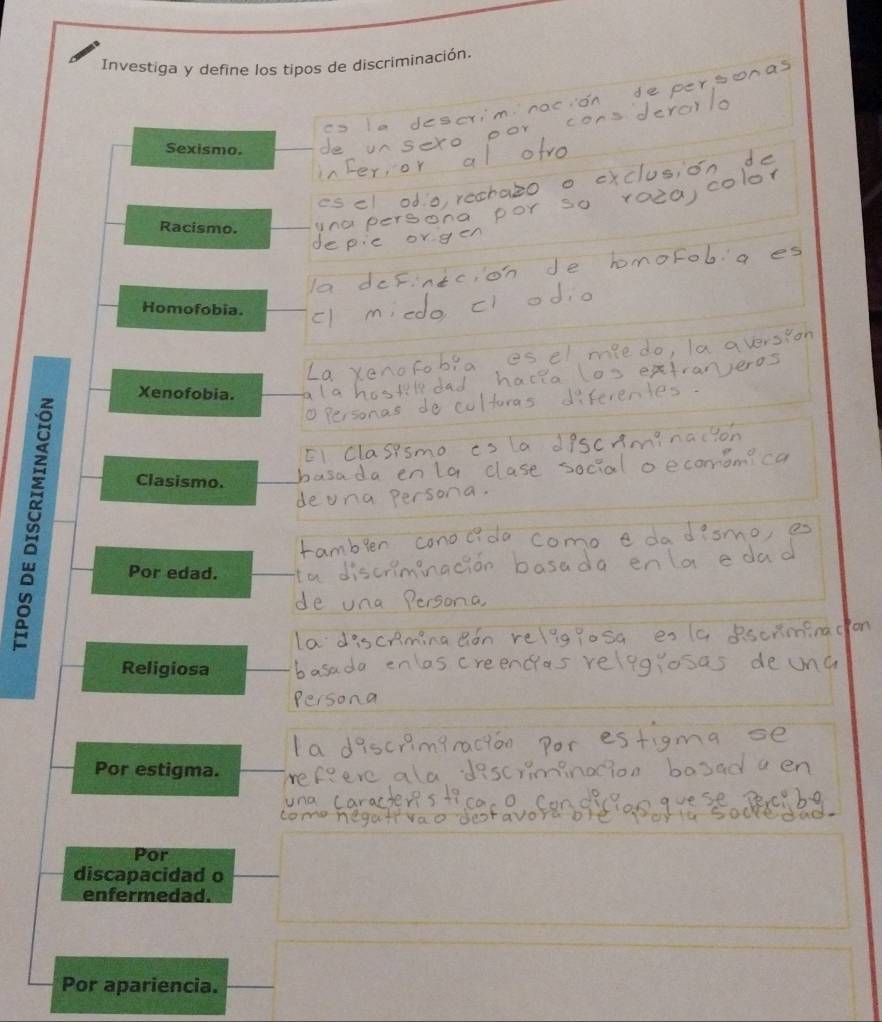 Investiga y define los tipos de discriminación.
TIPOS DE DISCRIMINACIÓN
Sexismo.
es la descriminación de personas
de un sexo por considerarlo
inferior al otro
Racismo.
es el odio, rechazo o exclusión de
una persona por so raza, color
de pie origen
Homofobia.
la definición de homofobia es
el miedo el odio
Xenofobia.
La xenofobia es el miedo, la aversion
a la hostilidad hacia los extranjeros
o Personas de culturas diferentes.
Clasismo.
El Clasismo es la discriminación
basada en la clase social o economica
de una Persona.
Por edad.
tambien conocida como edadismo, es
la discriminación basada en la edad
de una Persona,
Religiosa
la discriminación religiosa es la discriminacion
basada en las creencias religiosas de una
Persona
Por estigma.
la discriminación Por estigma se
refiere a la discriminacion basada en
una caracteristica o condicion que se Percibe
como negativa o desfavorable por la sociedad.
Por
discapacidad o
enfermedad.
Por apariencia.